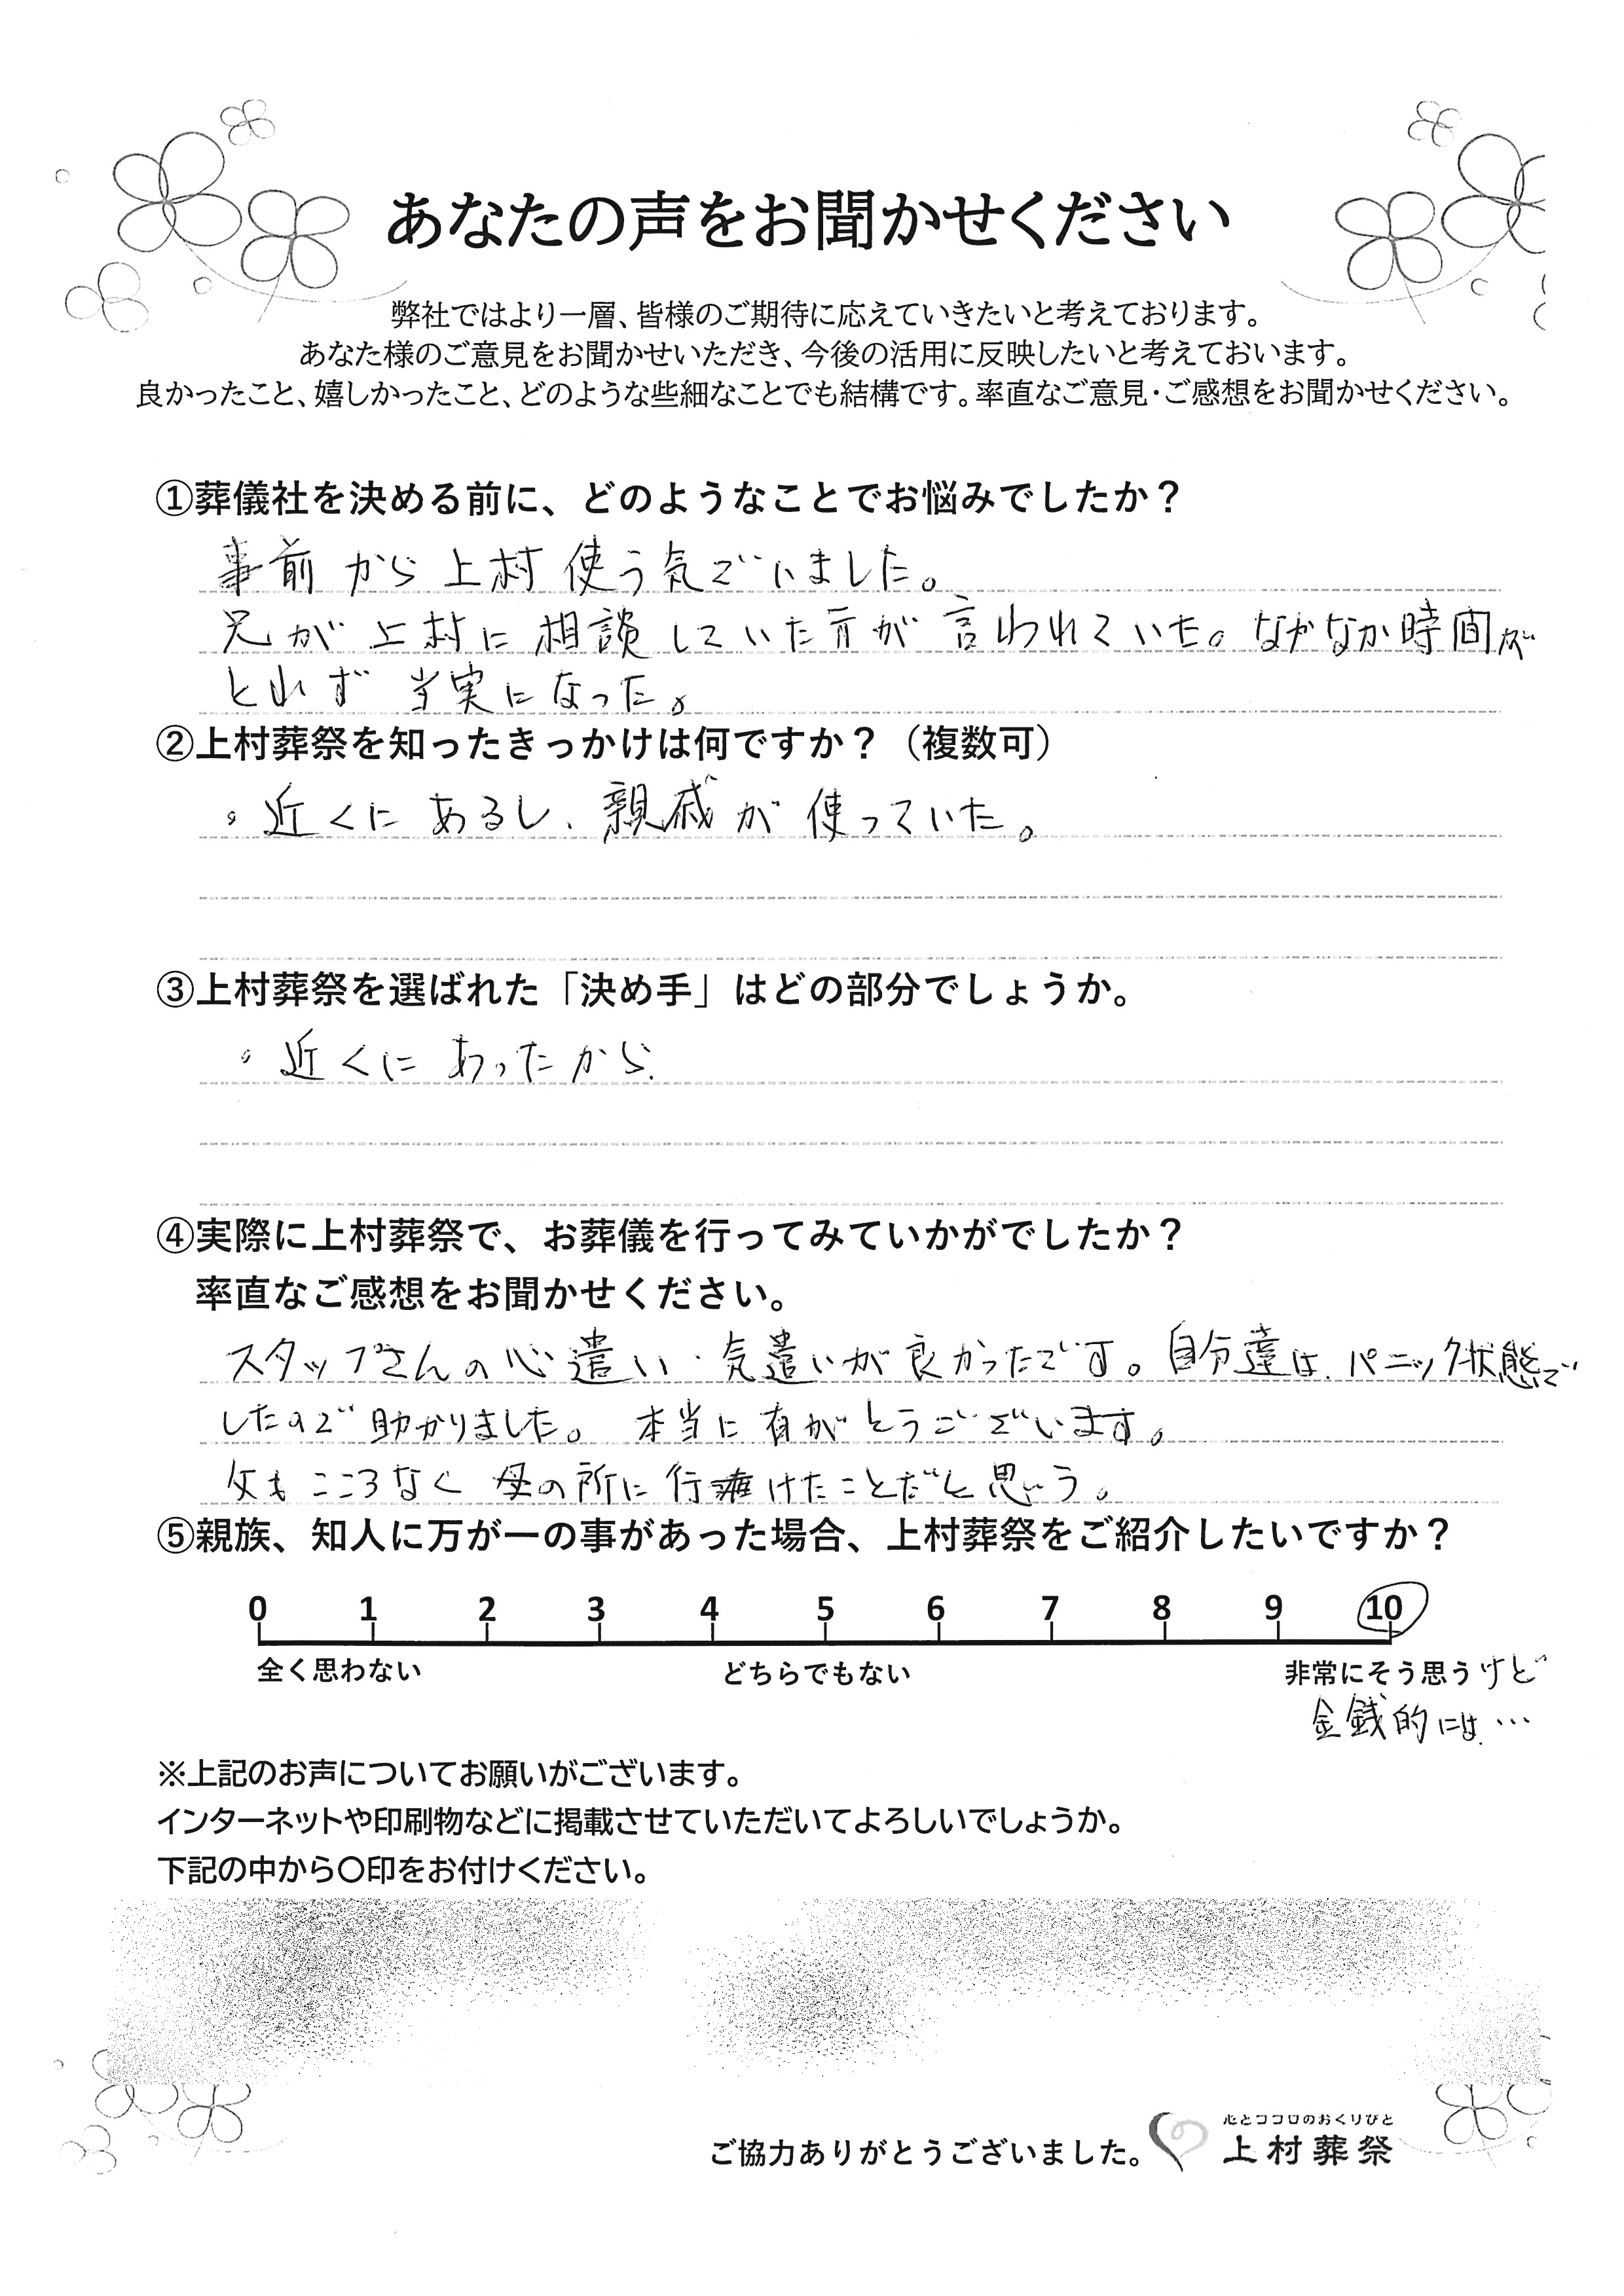 あなたの声をお聞かせください
弊社ではより一層、皆様のご期待に応えていきたいと考えております。
あなた様のご意見をお聞かせいただき、今後の活用に反映したいと考えておいます。
良かったこと、嬉しかったこと、どのような些細なことでも結構です。率直なご意見・ご感想をお聞かせください。
①葬儀社を決める前に、どのようなことでお悩みでしたか？
事前から上村使う気でいました。
兄が上村に相談していた方が言われていた。なかなか時間が
とれず当実になった。
②上村葬祭を知ったきっかけは何ですか？（複数可）
。近くにあるし、親戚が使っていた。
③上村葬祭を選ばれた「決め手」はどの部分でしょうか。
。近くにあったから.
④実際に上村葬祭で、お葬儀を行ってみていかがでしたか？
率直なご感想をお聞かせください。
スタッフさんの心遣い・気遣いが良かったです。自分達は、パニック状態で
したので助かりました。本当に有がとうございます。
父もこころなく母の所に行けたことだと思う。
⑤親族、知人に万が一の事があった場合、上村葬祭をご紹介したいですか？
0 1 2 3 4 5 6 7 8 9 10
全く思わない どちらでもない 非常にそう思うけど
金銭的には…
※上記のお声についてお願いがございます。
インターネットや印刷物などに掲載させていただいてよろしいでしょうか。
下記の中から〇印をお付けください。
ご協力ありがとうございました。
心とココロのおくりびと
上村葬祭